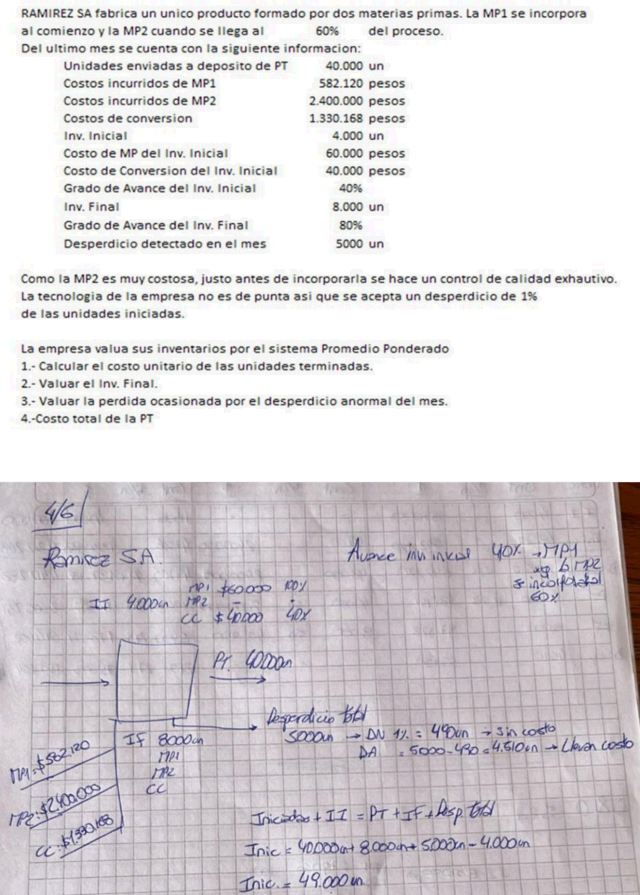 RAMIREZ SA fabrica un unico producto formado por dos materias primas. La MP1 se incorpora
al comienzo y la MP2 cuando se llega al 60% del proceso.
Del ultimo mes se cuenta con la siguiente informacion:
Unidades enviadas a deposito de PT 40.000 un
Costos incurridos de MP1 582.120 pesos
Costos incurridos de MP2 2.400.000 pesos
Costos de conversion 1.330.168 pesos
Inv. Inicial 4.000 un
Costo de MP del Inv. Inicial 60.000 pesos
Costo de Conversion del Inv. Inicial 40.000 pesos
Grado de Avance del Inv. Inicial 40%
Inv. Final 8.000 un
Grado de Avance del Inv. Final 80%
Desperdicio detectado en el mes 5000 un
Como la MP2 es muy costosa, justo antes de incorporarla se hace un control de calidad exhautivo.
La tecnologia de la empresa no es de punta asi que se acepta un desperdicio de 1%
de las unidades iniciadas.
La empresa valua sus inventarios por el sistema Promedio Ponderado
1.- Calcular el costo unitario de las unidades terminadas.
2.- Valuar el Inv. Final.
3.- Valuar la perdida ocasionada por el desperdicio anormal del mes.
4.-Costo total de la PT
4/6
Ramirez SA.
Avance inv inicial 40% → MP1
la MP2
se incorpora al
60%
II 4.000un
MP1 $60000 100%
MP2 -
CC $40000 40%
PT. 40000un
Desperdicio total
5000un → DN 1% = 490un → sin costo
DA = 5000-490=4.510un → Llevan costo
IF 8000un
MP1
MP2
CC
MP1: $582.120
MP2: $2.400.000
CC: $1.330.168
Iniciadas + II = PT + IF + Desp. total
Inic = 40.000un + 8.000un + 5.000un - 4.000un
Inic. = 49.000un